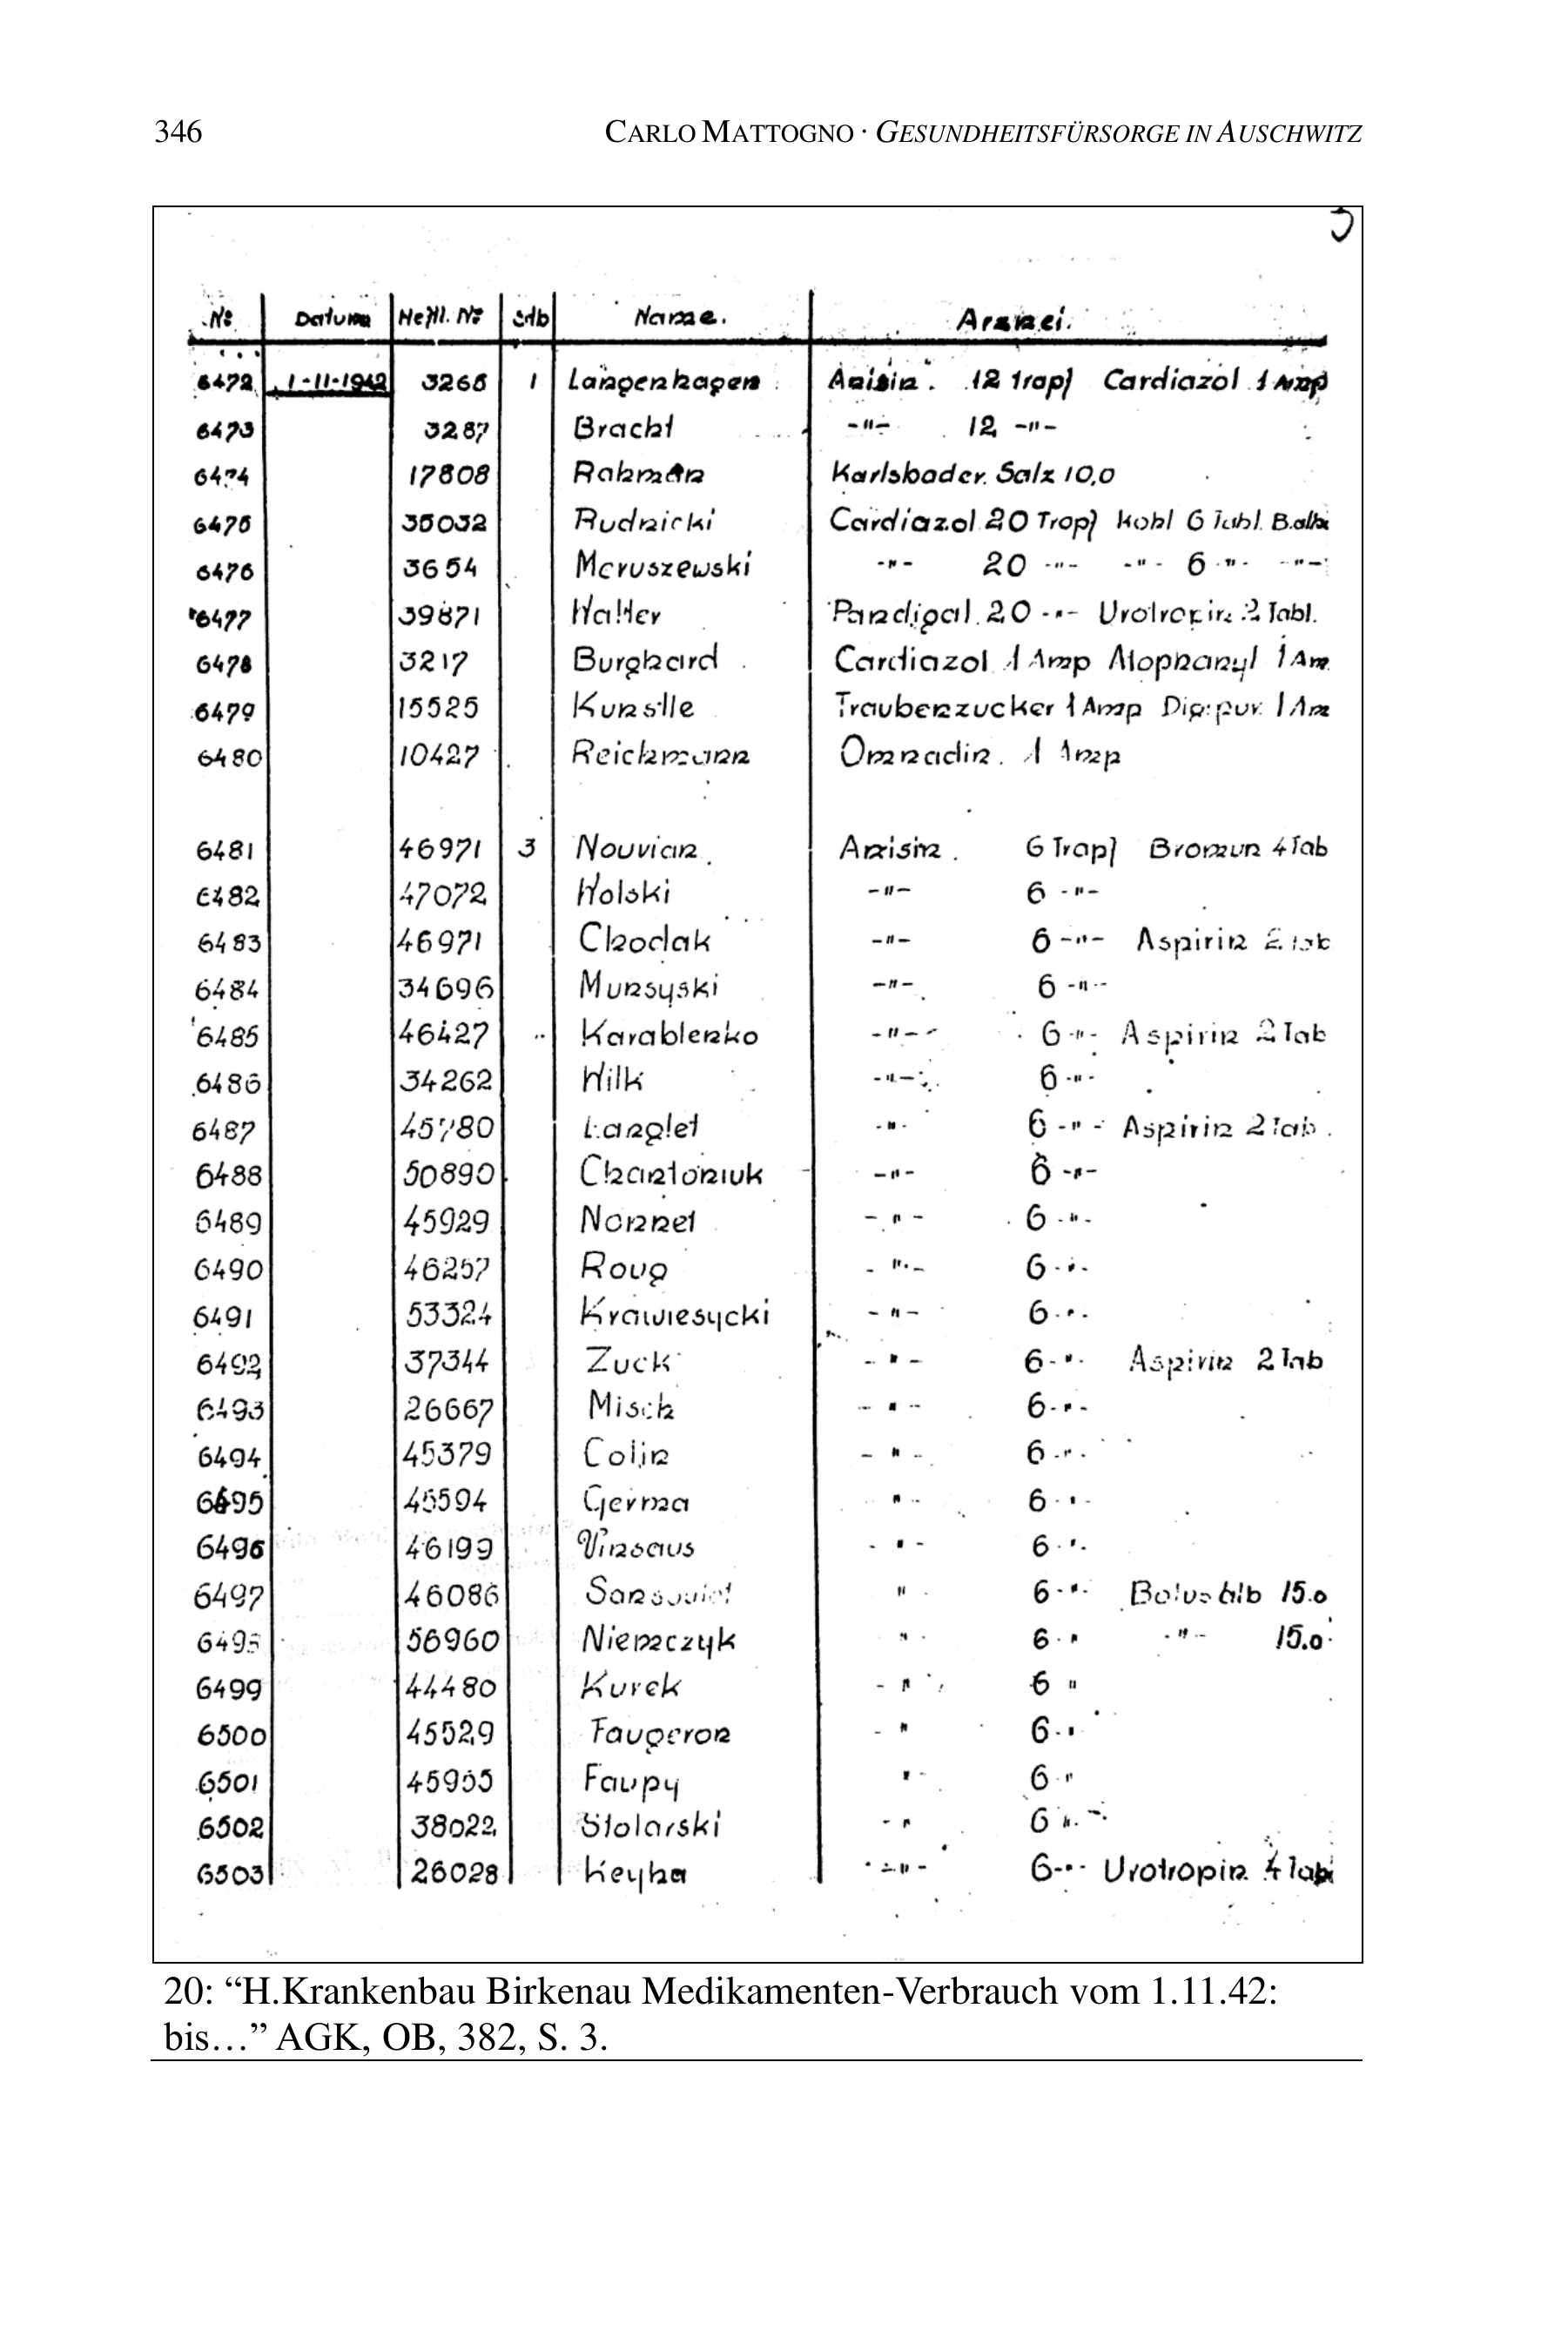 346
CARLO MATTOGNO · GESUNDHEITSFÜRSORGE IN AUSCHWITZ
3
Nº Datum Heftl. Nº Stb Name. Arznei.
6472 1-11-1942 3266 1 Langenhagen Anisin. 12 Tropf Cardiazol 1 Amp
6473 3287 Bracht -"- 12 -"-
6474 17808 Rahman Karlsbader Salz 10,0
6475 35032 Rudnicki Cardiazol 20 Tropf Kohl 6 Tabl. B.alba
6476 3654 Meruszewski -"- 20 -"- -"- 6 -"- -"-
6477 39871 Haller Pandigal 20 -"- Urotropin 2 Tabl.
6478 3217 Burghard Cardiazol 1 Amp Atophanyl 1 Am
6479 15525 Kunstle Traubenzucker 1 Amp Digipur. 1 Am
6480 10427 Reichmann Omnadin. 1 Amp
6481 46971 3 Nouvian Anisin. 6 Tropf Bromun 4 Tab
6482 47072 Wolski -"- 6 -"-
6483 46971 Chodak -"- 6 -"- Aspirin 2 tab
6484 34696 Munsyski -"- 6 -"-
6485 46427 Karablenko -"- 6 -"- Aspirin 2 Tab
6486 34262 Wilk -"- 6 -"-
6487 45780 Langlet -"- 6 -"- Aspirin 2 Tab.
6488 50890 Chantoniuk -"- 6 -"-
6489 45929 Nonnet -"- 6 -"-
6490 46257 Roug -"- 6 -"-
6491 53324 Krawiesycki -"- 6 -"-
6492 37344 Zuck -"- 6 -"- Aspirin 2 Tab
6493 26667 Misch -"- 6 -"-
6494 45379 Colin -"- 6 -"-
6495 45594 Germa " - 6 -"-
6496 46199 Vinsaus -"- 6 -"-
6497 46086 " - 6 -"- Bolus alb 15.0
6498 56960 Niemczyk " - 6 -" -"- 15.0
6499 44480 Kurek -" 6 "
6500 45529 Faugeron -" 6 -"
6501 45955 Faupy " - 6 -"
6502 38022 Stolarski -" 6 "-
6503 26028 Keyha -"- 6 -"- Urotropin 4 Tab
20: “H.Krankenbau Birkenau Medikamenten-Verbrauch vom 1.11.42:
bis…” AGK, OB, 382, S. 3.